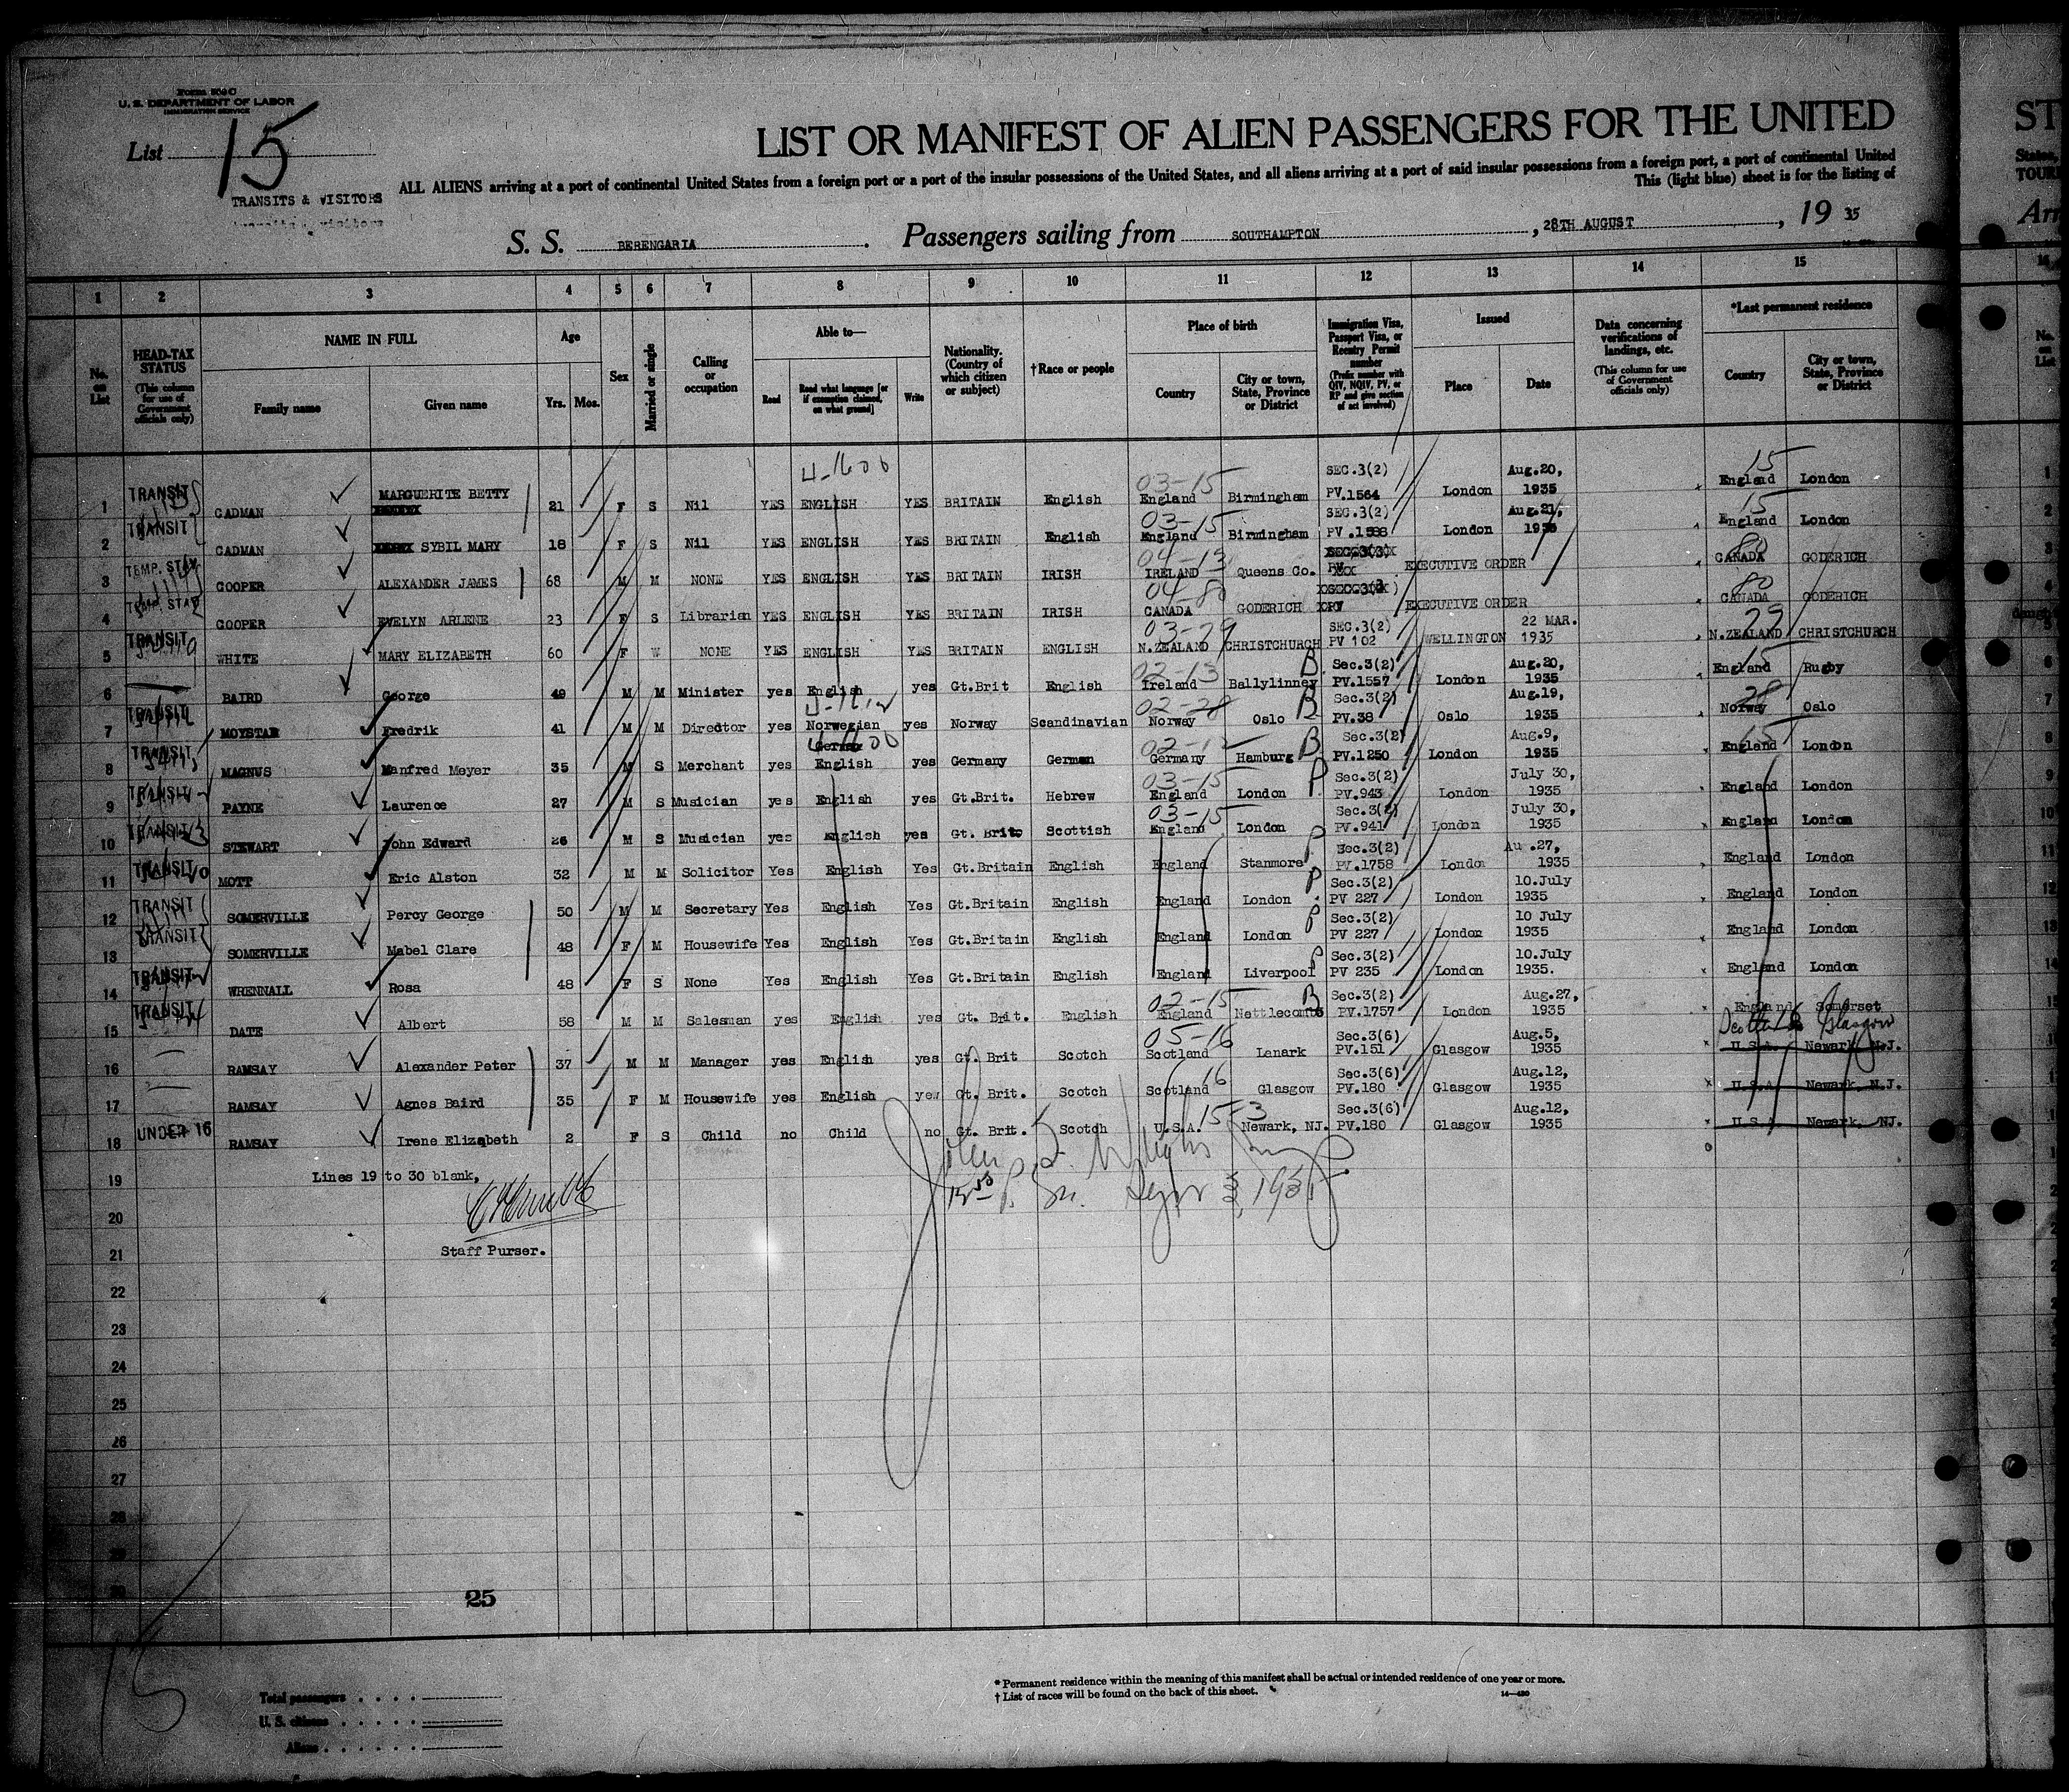 Form 500 C
U. S. DEPARTMENT OF LABOR
IMMIGRATION SERVICE
List 15
TRANSITS & VISITORS
LIST OR MANIFEST OF ALIEN PASSENGERS FOR THE UNITED
ST
ALL ALIENS arriving at a port of continental United States from a foreign port or a port of the insular possessions of the United States, and all aliens arriving at a port of said insular possessions from a foreign port, a port of continental United
States,
This (light blue) sheet is for the listing of
TOUR
S. S. BERENGARIA. Passengers sailing from SOUTHAMPTON, 28TH AUGUST, 19 35
Arr
1 2 3 4 5 6 7 8 9 10 11 12 13 14 15 16
No. on List
HEAD-TAX STATUS
(This column for use of Government officials only)
NAME IN FULL
Family name
Given name
Age
Yrs. Mos.
Sex
Married or single
Calling or occupation
Able to—
Read
Read what language [or if exemption claimed, on what ground]
Write
Nationality. (Country of which citizen or subject)
†Race or people
Place of birth
Country
City or town, State, Province or District
Immigration Visa, Passport Visa, or Reentry Permit number
(Prefix number with QIV, NQIV, PV, or RP and give section of act involved)
Issued
Place
Date
Data concerning verifications of landings, etc.
(This column for use of Government officials only)
*Last permanent residence
Country
City or town, State, Province or District
No. on List
1 TRANSIT CADMAN MARGUERITE BETTY 21 F S Nil YES ENGLISH YES BRITAIN English 03-15 England Birmingham SEC.3(2) PV.1564 London Aug.20, 1935 15 England London
2 TRANSIT CADMAN SYBIL MARY 18 F S Nil YES ENGLISH YES BRITAIN English 03-15 England Birmingham SEC.3(2) London Aug.21, 15 England London
3 TEMP. STAY COOPER ALEXANDER JAMES 68 M M NONE YES ENGLISH YES BRITAIN IRISH 04-13 IRELAND Queens Co. EXECUTIVE ORDER 80 CANADA GODERICH
4 TEMP. STAY COOPER EVELYN ARLENE 23 F S Librarian YES ENGLISH YES BRITAIN IRISH 04-80 CANADA GODERICH EXECUTIVE ORDER 80 CANADA GODERICH
5 TRANSIT WHITE MARY ELIZABETH 60 F W NONE YES ENGLISH YES BRITAIN ENGLISH 03-29 N.ZEALAND CHRISTCHURCH SEC.3(2) PV 102 WELLINGTON 22 MAR. 1935 29 N.ZEALAND CHRISTCHURCH
6 BAIRD George 49 M M Minister yes English yes Gt.Brit English 02-13 Ireland Ballylinney B Sec.3(2) PV.1557 London Aug.20, 1935 15 England Rugby
7 TRANSIT MOYSTAD Fredrik 41 M M Director yes Norwegian yes Norway Scandinavian 02-28 Norway Oslo B Sec.3(2) PV.38 Oslo Aug.19, 1935 28 Norway Oslo
8 TRANSIT MAGNUS Manfred Meyer 35 M S Merchant yes German English yes Germany German 02-12 Germany Hamburg B Sec.3(2) PV.1250 London Aug.9, 1935 15 England London
9 TRANSIT PAYNE Laurence 27 M S Musician yes English yes Gt.Brit. Hebrew 03-15 England London P Sec.3(2) PV.943 London July 30, 1935 England London
10 TRANSIT STEWART John Edward 26 M S Musician yes English yes Gt. Brit. Scottish 03-15 England London Sec.3(2) PV.941 London July 30, 1935 England London
11 TRANSIT MOTT Eric Alston 32 M M Solicitor Yes English Yes Gt.Britain English England Stanmore P Sec.3(2) PV.1758 London .27, 1935 England London
12 TRANSIT SOMERVILLE Percy George 50 M M Secretary Yes English Yes Gt.Britain English England London P Sec.3(2) PV 227 London 10.July 1935 England London
13 TRANSIT SOMERVILLE Mabel Clare 48 F M Housewife Yes English Yes Gt.Britain English England London P Sec.3(2) PV 227 London 10 July 1935 England London
14 TRANSIT WRENNALL Rosa 48 F S None Yes English Yes Gt.Britain English England Liverpool P Sec.3(2) PV 235 London 10.July 1935. England London
15 TRANSIT DATE Albert 58 M M Salesman yes English yes Gt. Brit. English 02-15 England Nettlecombe B Sec.3(2) PV.1757 London Aug.27, 1935 England Somerset
16 RAMSAY Alexander Peter 37 M M Manager yes English yes Gt. Brit Scotch 05-16 Scotland Lanark Sec.3(6) PV.151 Glasgow Aug.5, 1935 Glasgow U.S.A. Newark N.J.
17 RAMSAY Agnes Baird 35 F M Housewife yes English yes Gt. Brit. Scotch 16 Scotland Glasgow Sec.3(6) PV.180 Glasgow Aug.12, 1935 U.S.A. Newark, N.J.
18 UNDER 16 RAMSAY Irene Elizabeth 2 F S Child no Child no Gt. Brit. Scotch U.S.A. Newark, NJ. Sec.3(6) PV.180 Glasgow Aug.12, 1935 U.S.A. Newark, NJ.
19 Lines 19 to 30 blank,
20
21 Staff Purser.
22
23
24
25
26
27
28
29
30
25
15
Total passengers
U. S. citizens
Aliens
* Permanent residence within the meaning of this manifest shall be actual or intended residence of one year or more.
† List of races will be found on the back of this sheet.
14—430